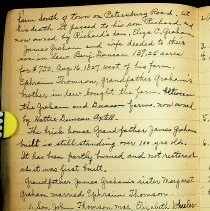 farm south of Town on Petersburg Road. at
his death it passed to his son Richard, &
now owned by Richard's son, Eliza C. Graham
James Graham and wife deeded to their
son in law Benj. Duncan 129.25 acres
for $750, Aug 16, 1827 west of his farm
Ephraim Thomson, Grandfather Graham's
brother in law bought the farm between
the Graham and Duncan farms, now owned
by Hattie Duncan
The brick house Grandfather James Graham
built is still standing over 100 yrs old.
It has been partly burned and not restored
as it was first built.
Grandfather James Graham's sister Margaret
Graham married Ephraim Thomson
1- Son John Thomson mar. Elizabeth Wheeler